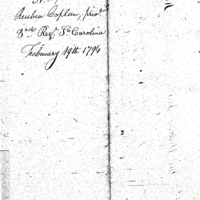 Reuben Coplan, priv.t
3rd Reg.t So Carolina
February 19th 1794